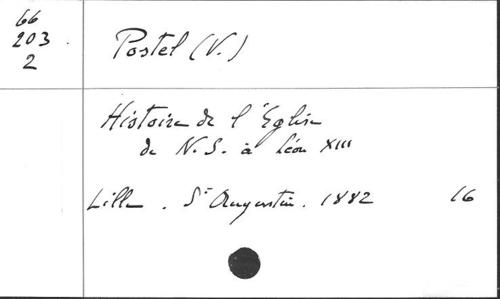 66
203
2
Postel (V.)
Histoire de l'Eglise
de N.S. à Léon XIII
Lille . St Augustin . 1882 16